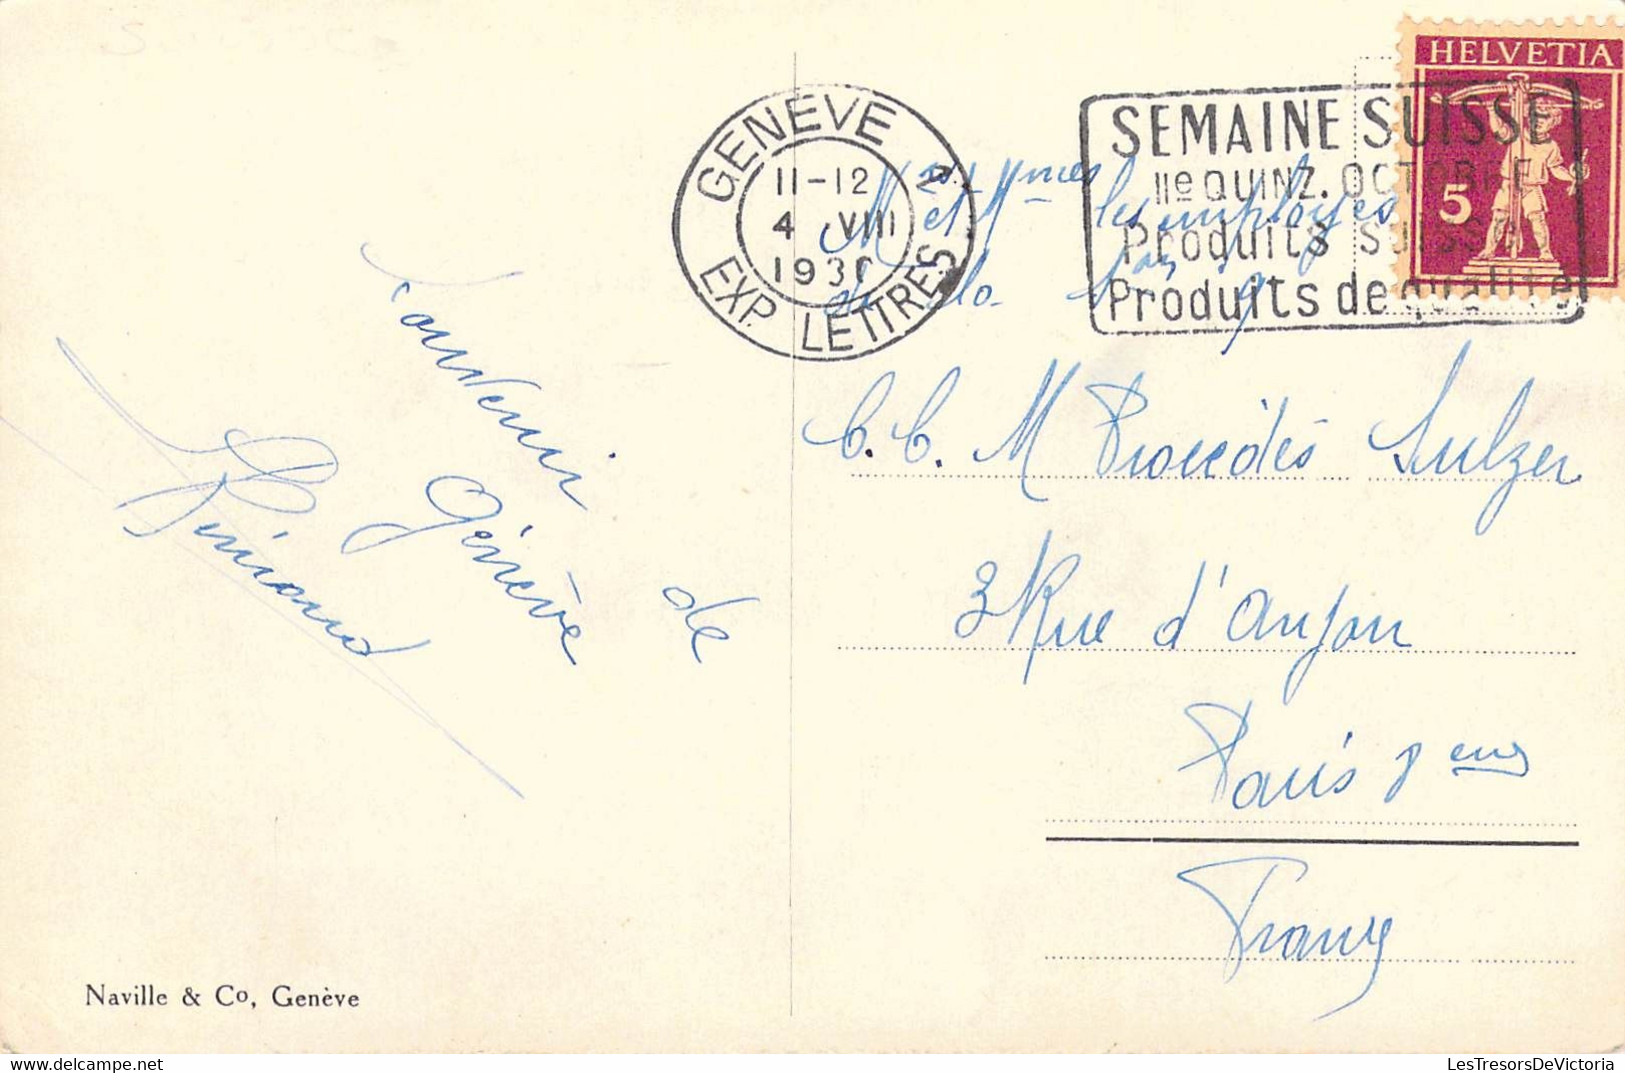 HELVETIA
5
GENÈVE
11-12
4 VIII
EXP. LETTRES
SEMAINE SUISSE
IIe QUINZ. OCTOBRE
Produits suisses
Produits de qualité
et les employés
de la
Souvenir
de
Genève
C. C. M Procédés Sulzer
3 Rue d'Anjou
Paris 8 eme
France
Naville & Co, Genève
LesTresorsDeVictoria